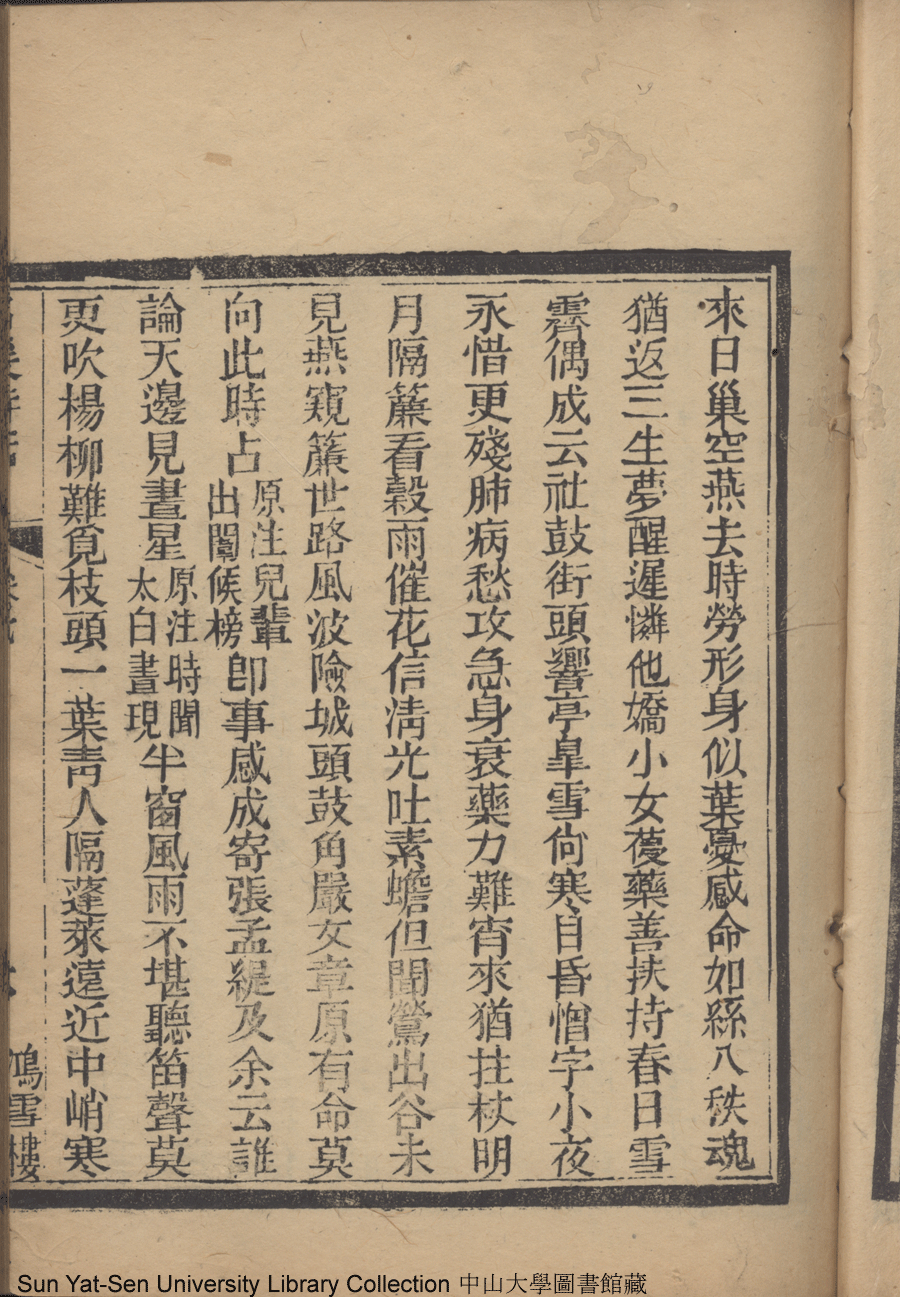 來日巢空燕去時勞形身似葉憂感命如絲八秩魂
猶返三生夢醒遲憐他嬌小女䕶藥善扶持春日雪
霽偶成云社鼓街頭響亭臯雪尙寒目昏憎字小夜
永惜更殘肺病愁攻急身衰藥力難宵來猶拄杖明
月隔簾看榖雨催花信淸光吐素蟾但聞鶯出谷未
見燕窺簾世路風波險城頭鼓角嚴文章原有命莫
向此時占原注兒輩出闈候榜卽事感成寄張孟緹及余云誰
論天邊見晝星原注時聞太白晝現半窗風雨不堪聽笛聲莫
更吹楊柳難覓枝頭一葉靑人隔蓬萊遠近中峭寒
鴻雪樓
Sun Yat-Sen University Library Collection 中山大學圖書館藏